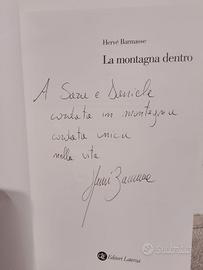 Hervé Barmasse
La montagna dentro
A Sara e Daniele
cordata in montagna
cordata unica
nella vita
Hervé Barmasse
Editori Laterza
subito